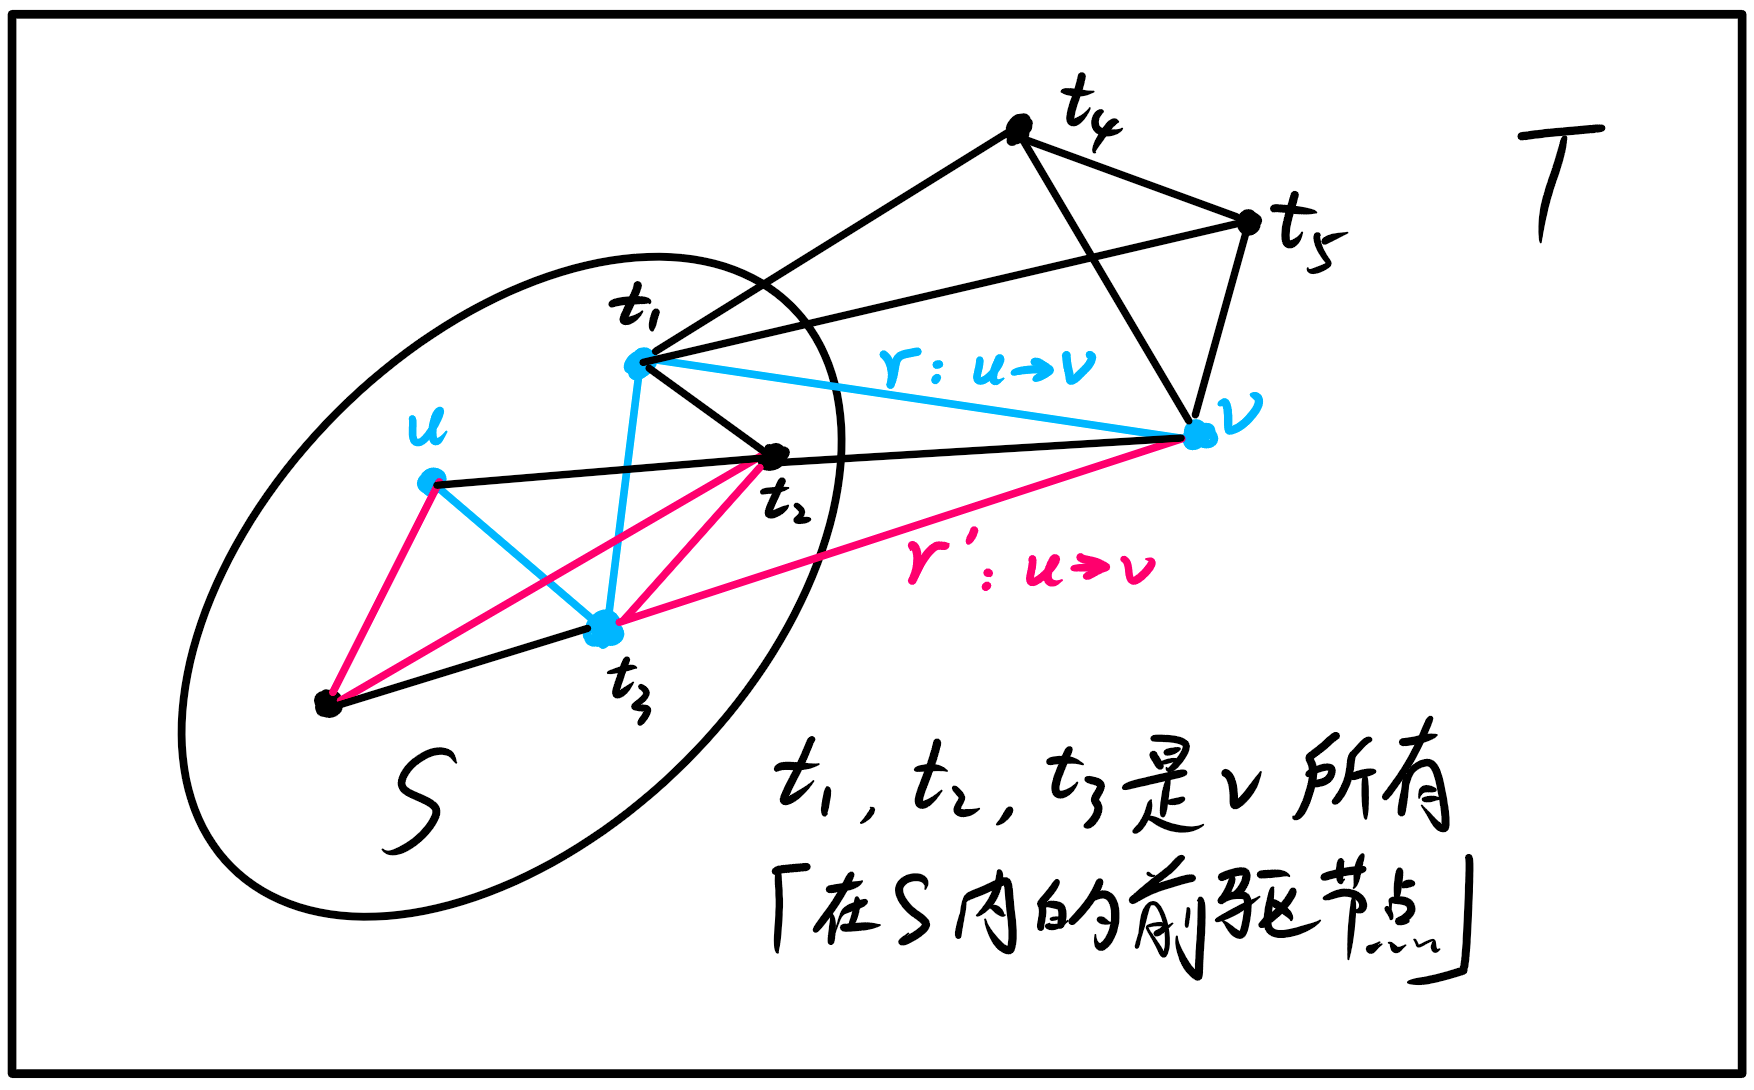 t₄
T
t₅
t₁
r: u→v
u
v
t₂
r': u→v
t₃
S
t₁, t₂, t₃是v所有
「在S内的前驱节点」